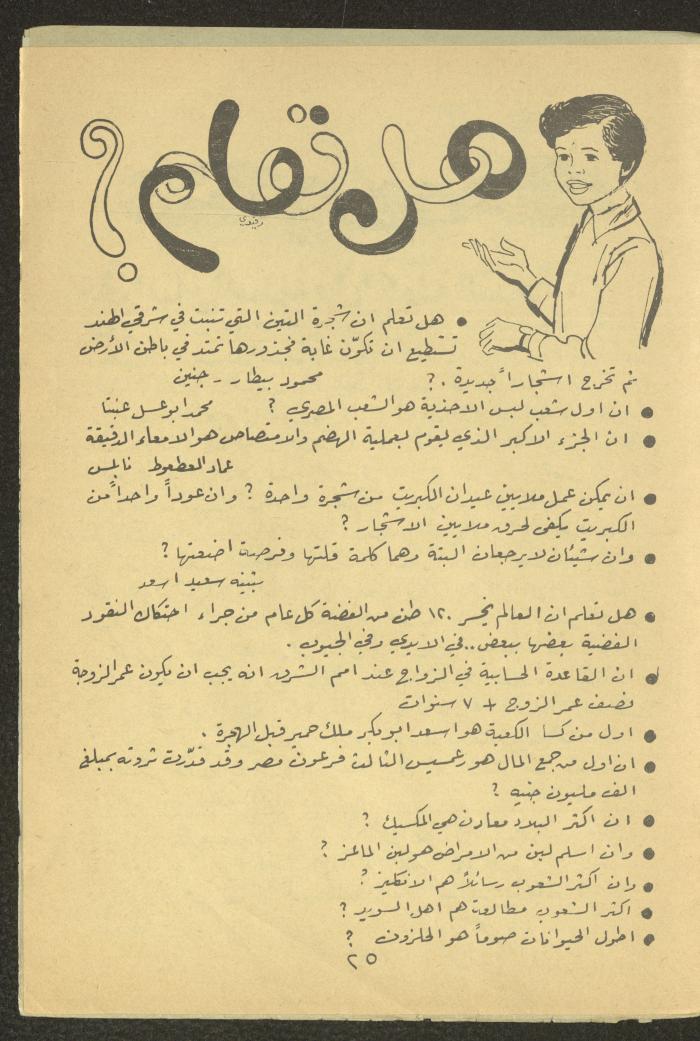 هل تعلم ؟
● هل تعلم ان شجرة التين التي تنبت في شرقي الهند
تستطيع ان تكوّن غابة فجذورها تمتد في باطن الأرض
ثم تخرج اشجاراً جديدة .؟ محمود بيطار - جنين
● ان اول شعب لبس الاحذية هو الشعب المصري ؟ محمد ابو عسل عنبتا
● ان الجزء الاكبر الذي يقوم بعملية الهضم والامتصاص هو الامعاء الدقيقة
عماد العطعوط نابلس
● ان يمكن عمل ملايين عيدان الكبريت من شجرة واحدة ؟ وان عوداً واحداً من
الكبريت يكفي لحرق ملايين الاشجار ؟
● وان شيئان لا يرجعان البتة وهما كلمة قلتها وفرصة اضعتها ؟
بثينه سعيد اسعد
● هل تعلم ان العالم يخسر ١٢٠ طن من الفضة كل عام من جراء احتكاك النقود
الفضية بعضها ببعض .. في الايدي وفي الجيوب .
● ان القاعدة الحسابية في الزواج عند امم الشرق انه يجب ان يكون عمر الزوجة
نصف عمر الزوج + ٧ سنوات
● اول من كسا الكعبة هو اسعد ابو بكر ملك حمير قبل الهجرة .
● ان اول من جمع المال هو رعمسيس الثالث فرعون مصر وقد قدّرت ثروته بمبلغ
الف مليون جنيه ؟
● ان اكثر البلاد معادن هي المكسيك ؟
● وان اسلم لبن من الامراض هو لبن الماعز ؟
● وان اكثر الشعوب رسائلاً هم الانكليز ؟
● اكثر الشعوب مطالعة هم اهل السويد ؟
● اطول الحيوانات صوماً هو الحلزون ؟
٢٥